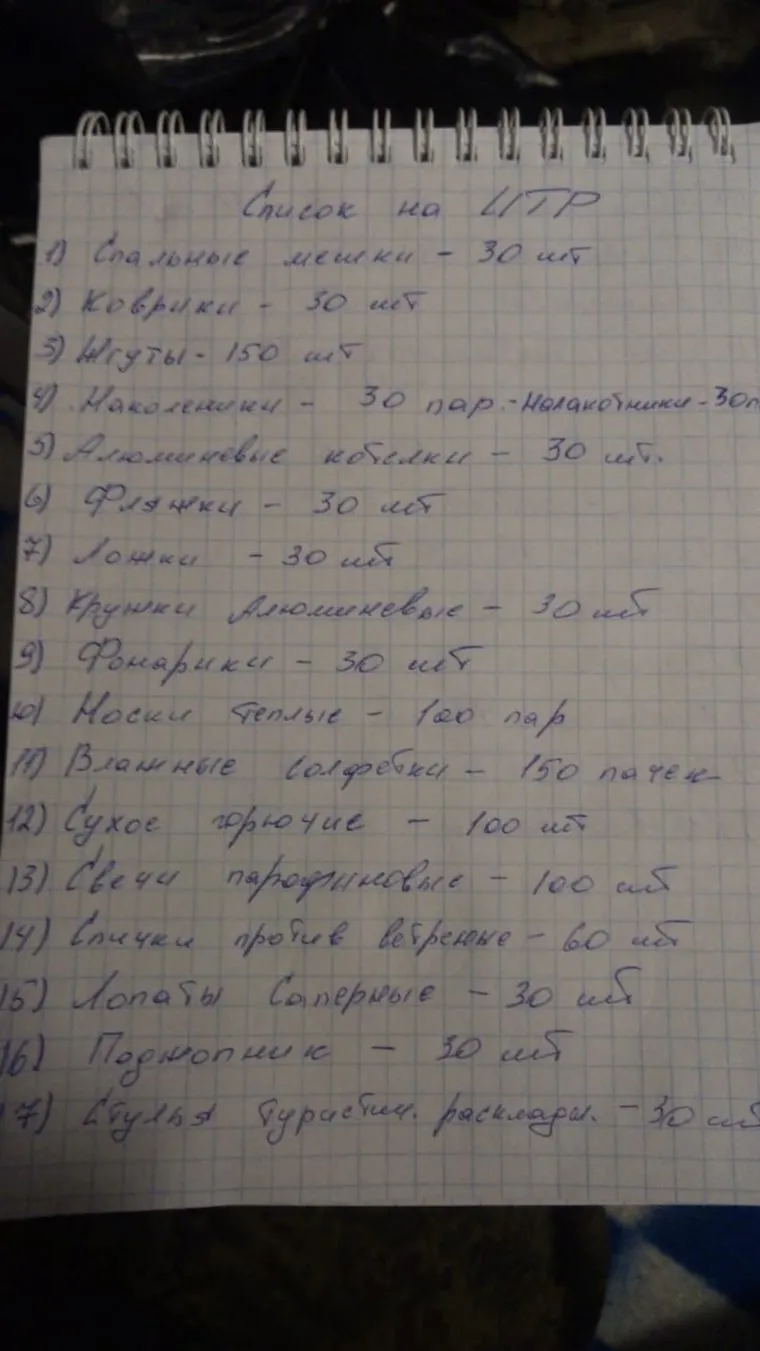 Список на ИТР
1) Спальные мешки - 30 шт
2) Коврики - 30 шт
3) Жгуты - 150 шт
4) Наколеники - 30 пар. - Налакотники - 30п
5) Алюминевые котелки - 30 шт.
6) Фляжки - 30 шт
7) Ложки - 30 шт
8) Кружки Алюминевые - 30 шт
9) Фонарики - 30 шт
10) Носки теплые - 100 пар
11) Влажные солфетки - 150 пачек
12) Сухое горючие - 100 шт
13) Свечи парофиновые - 100 шт
14) Спички против ветреные - 60 шт
15) Лопаты Саперные - 30 шт
16) Поджопник - 30 шт
17) Стулья туристич. расклады. - 30 шт